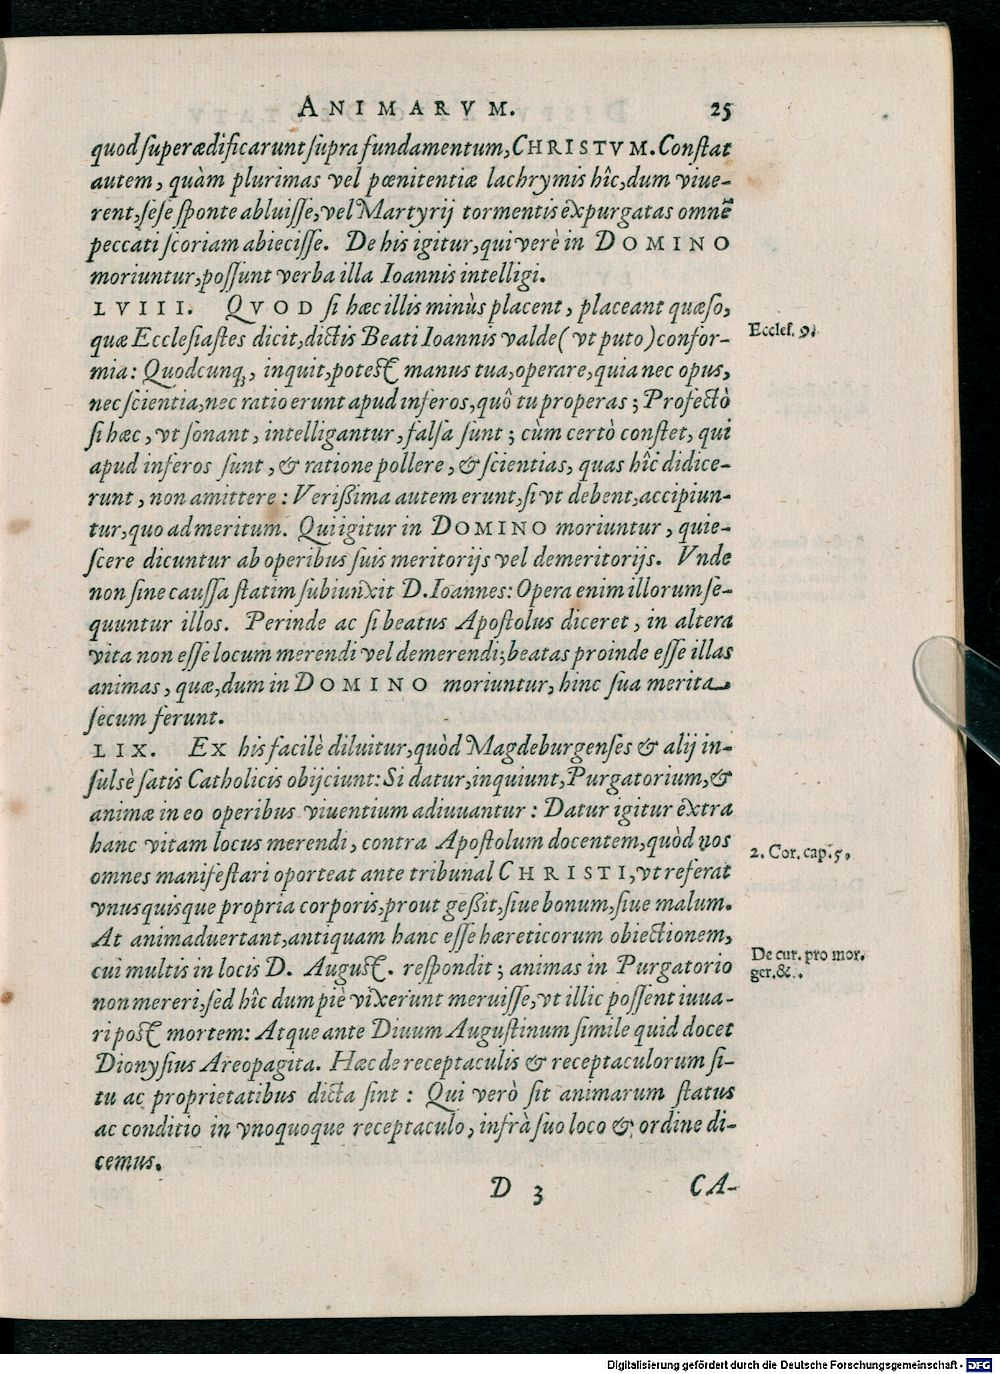 ANIMARVM. 25
quod superædificarunt supra fundamentum, CHRISTVM. Constat
autem, quàm plurimas vel pœnitentiæ lachrymis hîc, dum viue-
rent, sese sponte abluisse, vel Martyrij tormentis expurgatas omnẽ
peccati scoriam abiecisse. De his igitur, qui verè in DOMINO
moriuntur, possunt verba illa Ioannis intelligi.
LVIII. QVOD si hæc illis minùs placent, placeant quæso,
Eccles. 9.
quæ Ecclesiastes dicit, dictis Beati Ioannis valde (vt puto) confor-
mia: Quodcunq;, inquit, potest manus tua, operare, quia nec opus,
nec scientia, nec ratio erunt apud inferos, quô tu properas; Profectò
si hæc, vt sonant, intelligantur, falsa sunt; cùm certò constet, qui
apud inferos sunt, & ratione pollere, & scientias, quas hîc didice-
runt, non amittere: Verißima autem erunt, si vt debent, accipiun-
tur, quo ad meritum. Qui igitur in DOMINO moriuntur, quie-
scere dicuntur ab operibus suis meritorijs vel demeritorijs. Vnde
non sine caussa statim subiunxit D. Ioannes: Opera enim illorum se-
quuntur illos. Perinde ac si beatus Apostolus diceret, in altera
vita non esse locum merendi vel demerendi; beatas proinde esse illas
animas, quæ, dum in DOMINO moriuntur, hinc sua merita
secum ferunt.
LIX. EX his facilè diluitur, quòd Magdeburgenses & alij in-
sulsè satis Catholicis obijciunt: Si datur, inquiunt, Purgatorium, &
animæ in eo operibus viuentium adiuuantur: Datur igitur extra
hanc vitam locus merendi, contra Apostolum docentem, quòd nos
2. Cor. cap. 5.
omnes manifestari oporteat ante tribunal CHRISTI, vt referat
vnusquisque propria corporis, prout geßit, siue bonum, siue malum.
At animaduertant, antiquam hanc esse hæreticorum obiectionem,
De cur. pro mor.
ger. &
cui multis in locis D. August. respondit; animas in Purgatorio
non mereri, sed hîc dum piè vixerunt meruisse, vt illic possent iuua-
ri post mortem: Atque ante Diuum Augustinum simile quid docet
Dionysius Areopagita. Hæc de receptaculis & receptaculorum si-
tu ac proprietatibus dicta sint: Qui verò sit animarum status
ac conditio in vnoquoque receptaculo, infrà suo loco & ordine di-
cemus.
D 3 CA-
Digitalisierung gefördert durch die Deutsche Forschungsgemeinschaft - DFG